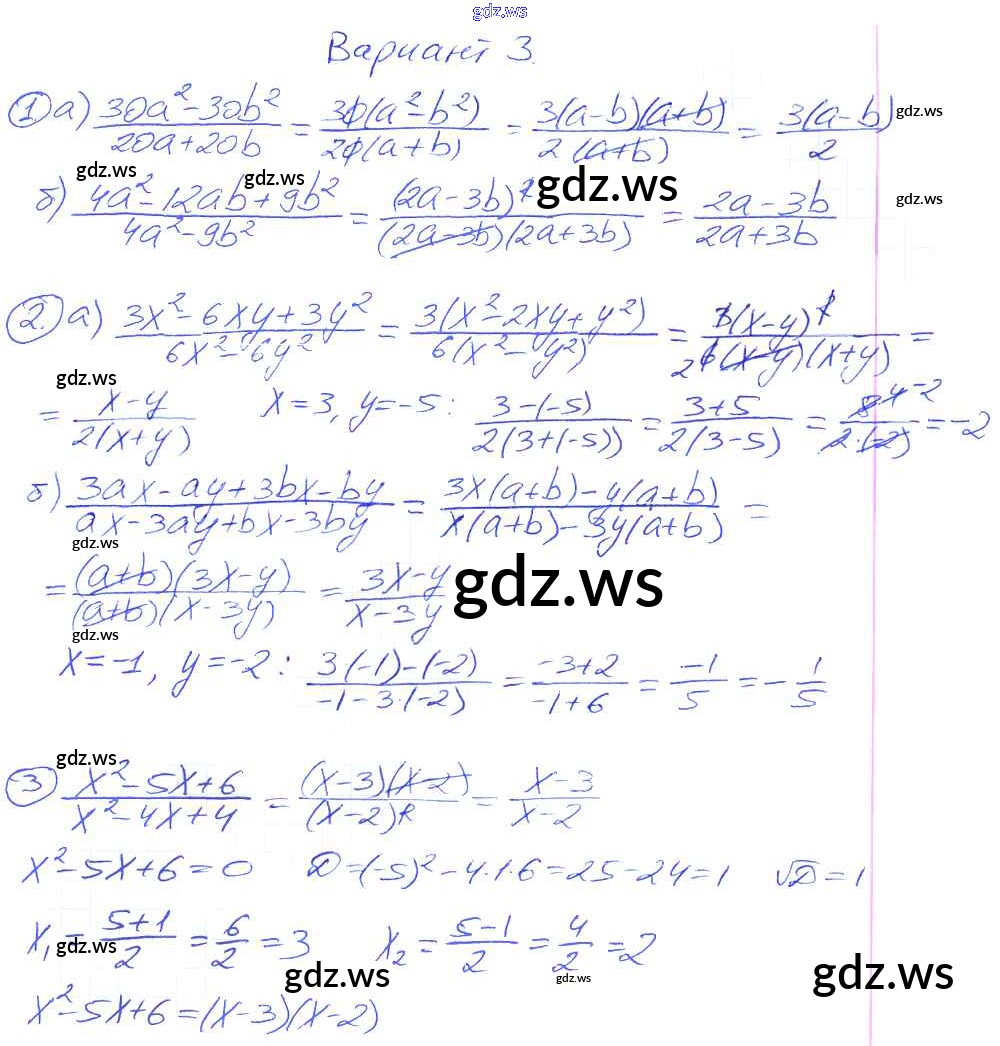 gdz.ws
Вариант 3.
① а) (30a² − 30b²)/(20a + 20b) = (30(a² − b²))/(20(a + b)) = (3(a − b)(a + b))/(2(a + b)) = (3(a − b))/2 gdz.ws
gdz.ws gdz.ws gdz.ws gdz.ws
б) (4a² − 12ab + 9b²)/(4a² − 9b²) = (2a − 3b)²/((2a − 3b)(2a + 3b)) = (2a − 3b)/(2a + 3b)
② а) (3x² − 6xy + 3y²)/(6x² − 6y²) = (3(x² − 2xy + y²))/(6(x² − y²)) = (3(x − y)²)/(2 6(x − y)(x + y)) =
gdz.ws
= (x − y)/(2(x + y)) x = 3, y = −5 : (3 − (−5))/(2(3 + (−5))) = (3 + 5)/(2(3 − 5)) = (8 4 −2)/(2·(−2)) = −2
б) (3ax − ay + 3bx − by)/(ax − 3ay + bx − 3by) = (3x(a + b) − y(a + b))/(x(a + b) − 3y(a + b)) =
gdz.ws
= ((a + b)(3x − y))/((a + b)(x − 3y)) = (3x − y)/(x − 3y) gdz.ws
gdz.ws
x = −1, y = −2 : (3(−1) − (−2))/(−1 − 3·(−2)) = (−3 + 2)/(−1 + 6) = −1/5 = − 1/5
gdz.ws
③ (x² − 5x + 6)/(x² − 4x + 4) = ((x − 3)(x − 2))/(x − 2)² = (x − 3)/(x − 2)
x² − 5x + 6 = 0 D = (−5)² − 4·1·6 = 25 − 24 = 1 √D = 1
x₁ = (5 + 1)/2 = 6/2 = 3 x₂ = (5 − 1)/2 = 4/2 = 2
gdz.ws gdz.ws gdz.ws gdz.ws
x² − 5x + 6 = (x − 3)(x − 2)